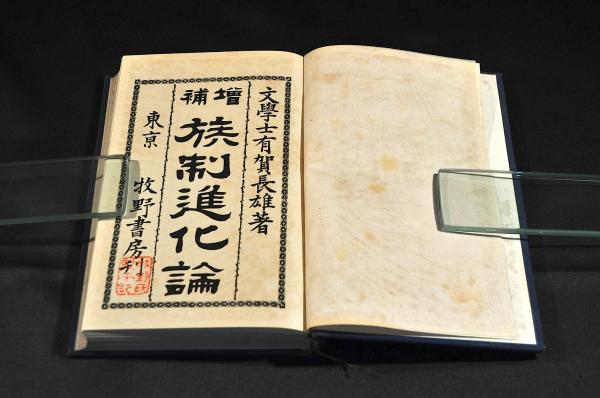 文學士有賀長雄著
增補
族制進化論
東京 牧野書房刊